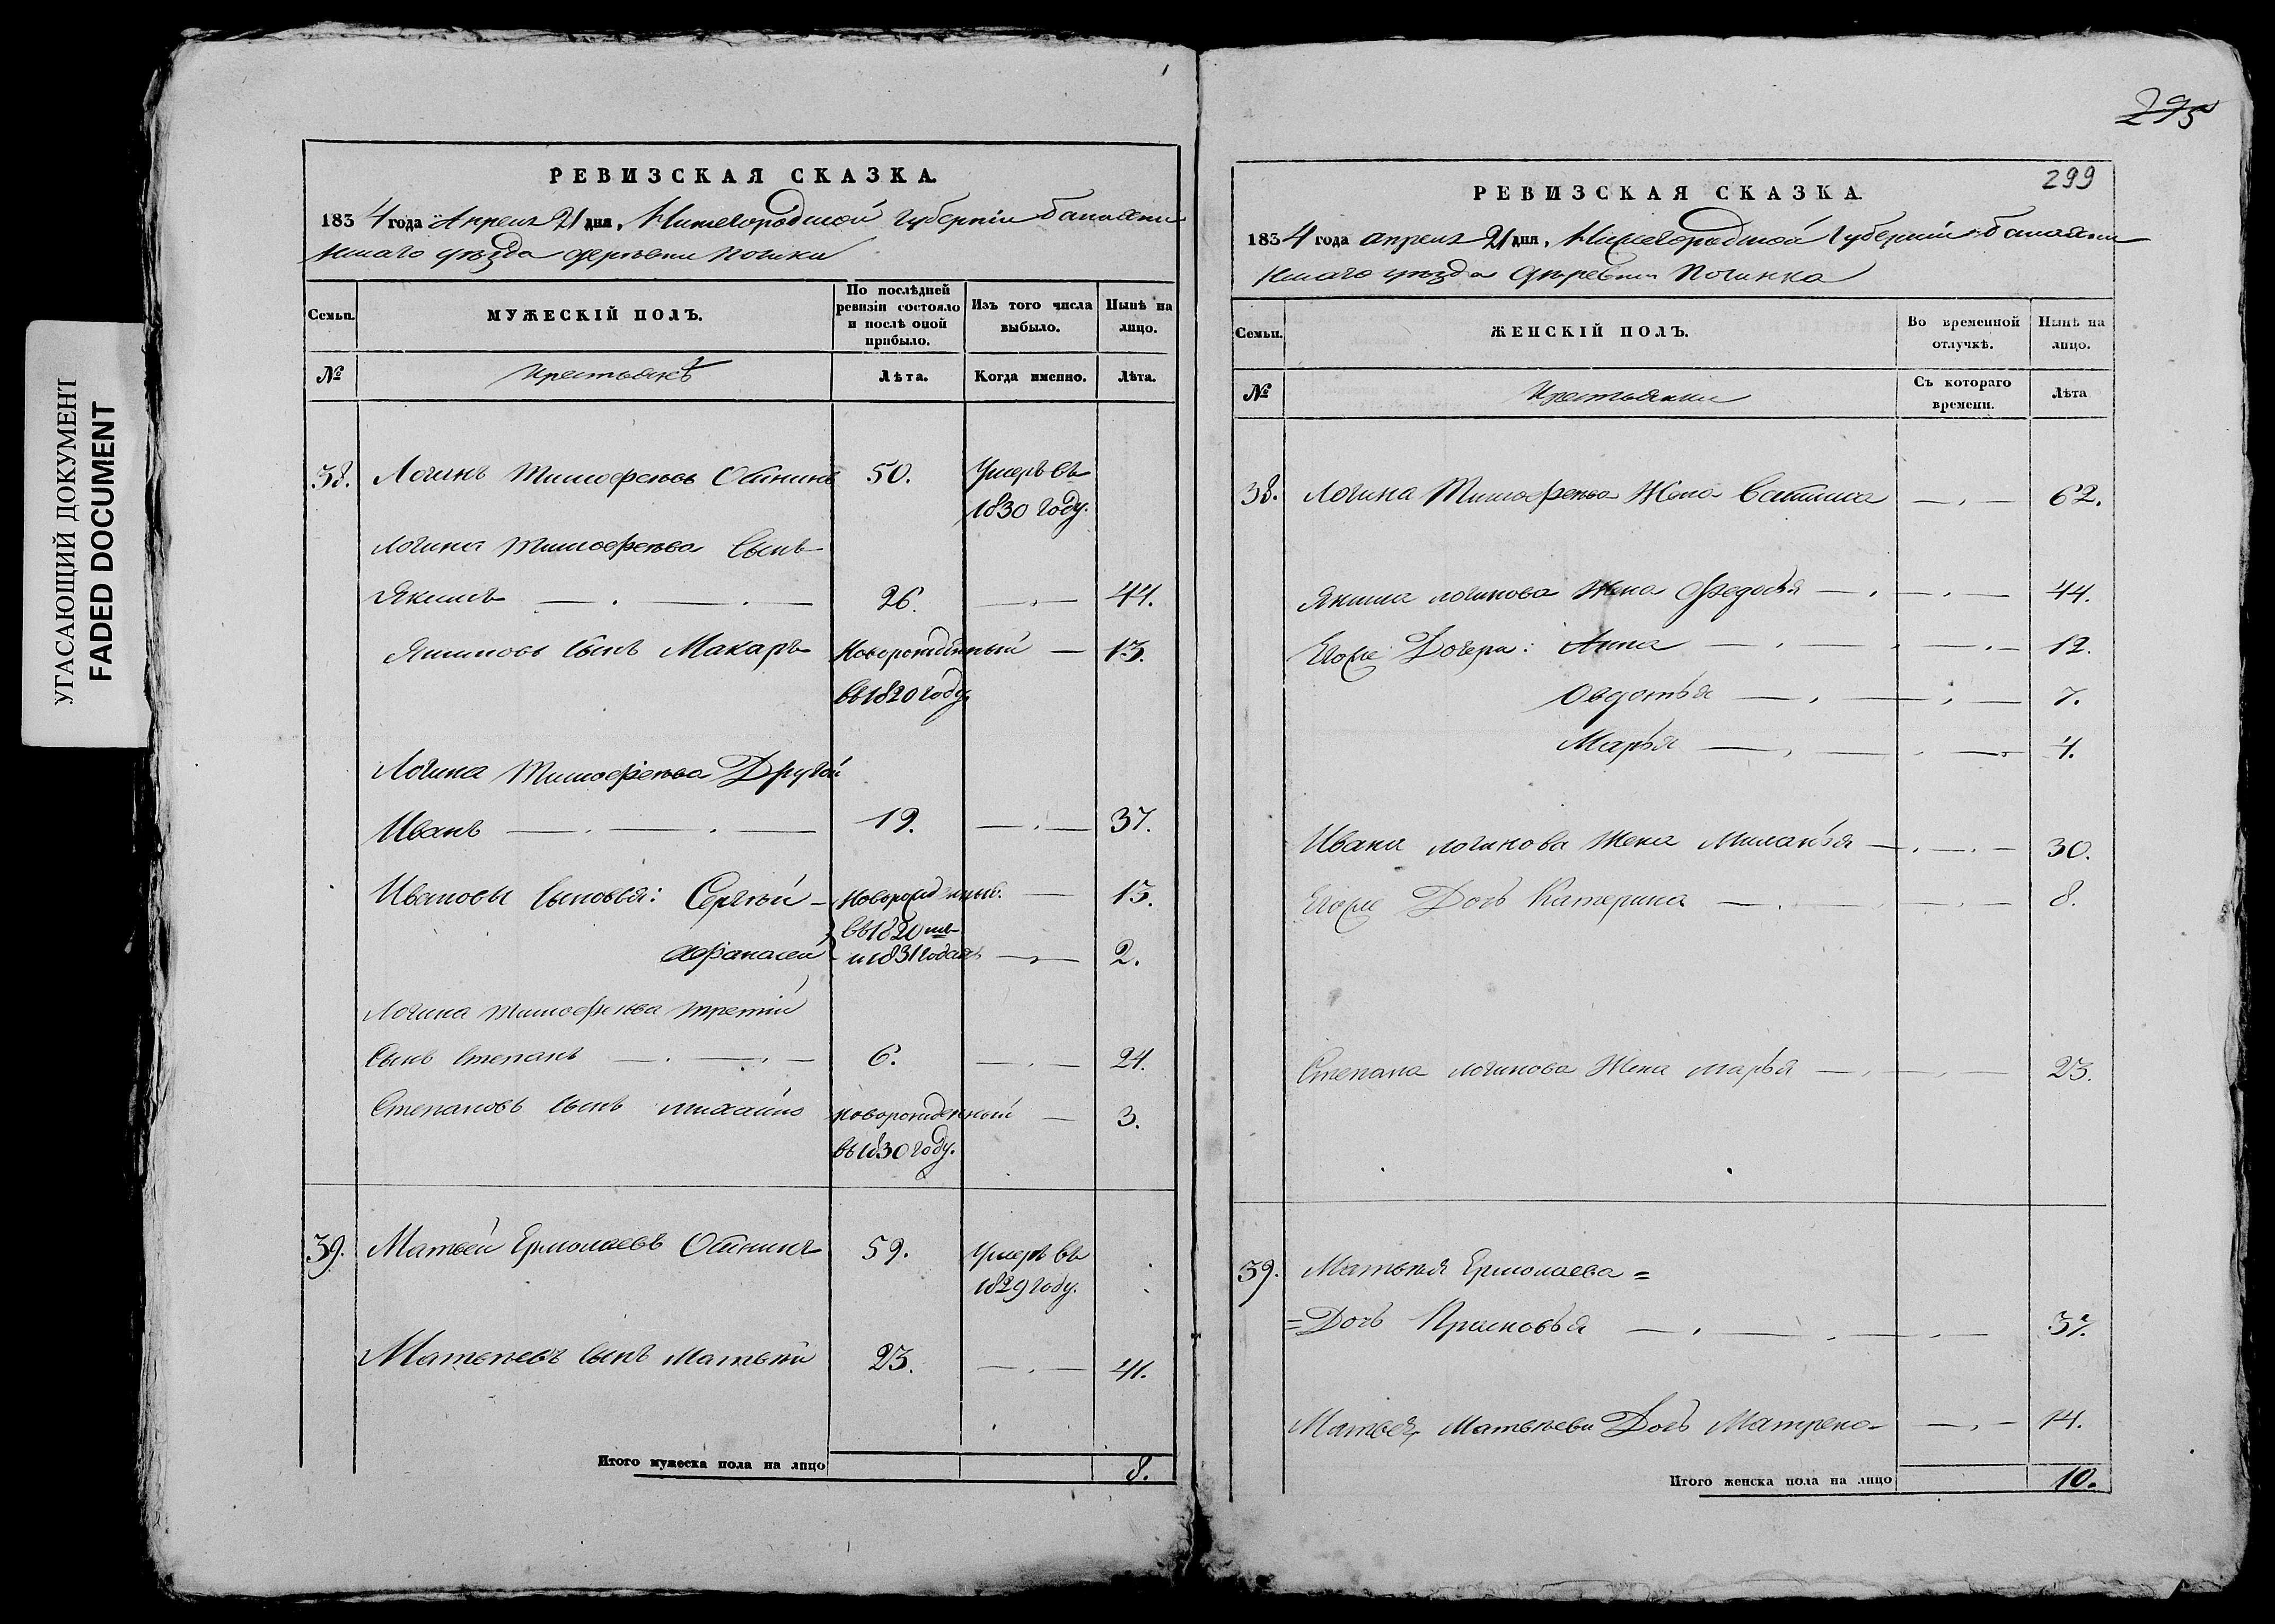 УГАСАЮЩИЙ ДОКУМЕНТ
FADED DOCUMENT
РЕВИЗСКАЯ СКАЗКА.
1834 года Апреля 21 дня, Нижегородской Губерніи Балахни
нскаго уѣзда деревни Починки
Семьи.
МУЖЕСКІЙ ПОЛЪ.
По послѣдней ревизіи состояло и послѣ оной прибыло.
Изъ того числа выбыло.
Нынѣ на лицо.
№
Крестьянъ
Лѣта.
Когда именно.
Лѣта.
38. Логинъ Тимофеевъ 50. Умеръ въ
1830 году.
Логина Тимофеева Сынъ
Якимъ 26. 44.
Якимовъ Сынъ Макаръ Новорожденный 13.
въ 1820 году.
Логина Тимофеева Другой
Иванъ 19. 37.
Ивановы Сыновья: Сергѣй Новорожденные. 13.
въ 1820 мъ
Афанасей и 1831 годахъ 2.
Логина Тимофеева третій
Сынъ Степанъ 6. 24.
Степановъ Сынъ Михайло Новорожденный 3.
въ 1830 году.
39. Матвей Ермолаевъ 59. Умеръ въ
1829 году.
Матвеевъ Сынъ Матвѣй 23. 41.
Итого мужеска пола на лицо 8.
295
299
РЕВИЗСКАЯ СКАЗКА
1834 года апреля 21 дня, Нижегородской Губерніи Балахни
нскаго уѣзда деревни Починка
Семьи.
ЖЕНСКІЙ ПОЛЪ.
Во временной отлучкѣ.
Нынѣ на лицо.
№
Крестьянки
Съ котораго времени.
Лѣта
38. Логина Тимофеева Жена 62.
Якима Логинова Жена Федосья 44.
Егоже Дочери: Анна 12.
Овдотья 7.
Марья 4.
Ивана Логинова Жена Миланья 30.
Егоже Дочь Катерина 8.
Степана Логинова Жена Марья 23.
39. Матвея Ермолаева =
= Дочь Прасковья 37.
Матвея Матвеева Дочь Матрена 14.
Итого женска пола на лицо 10.